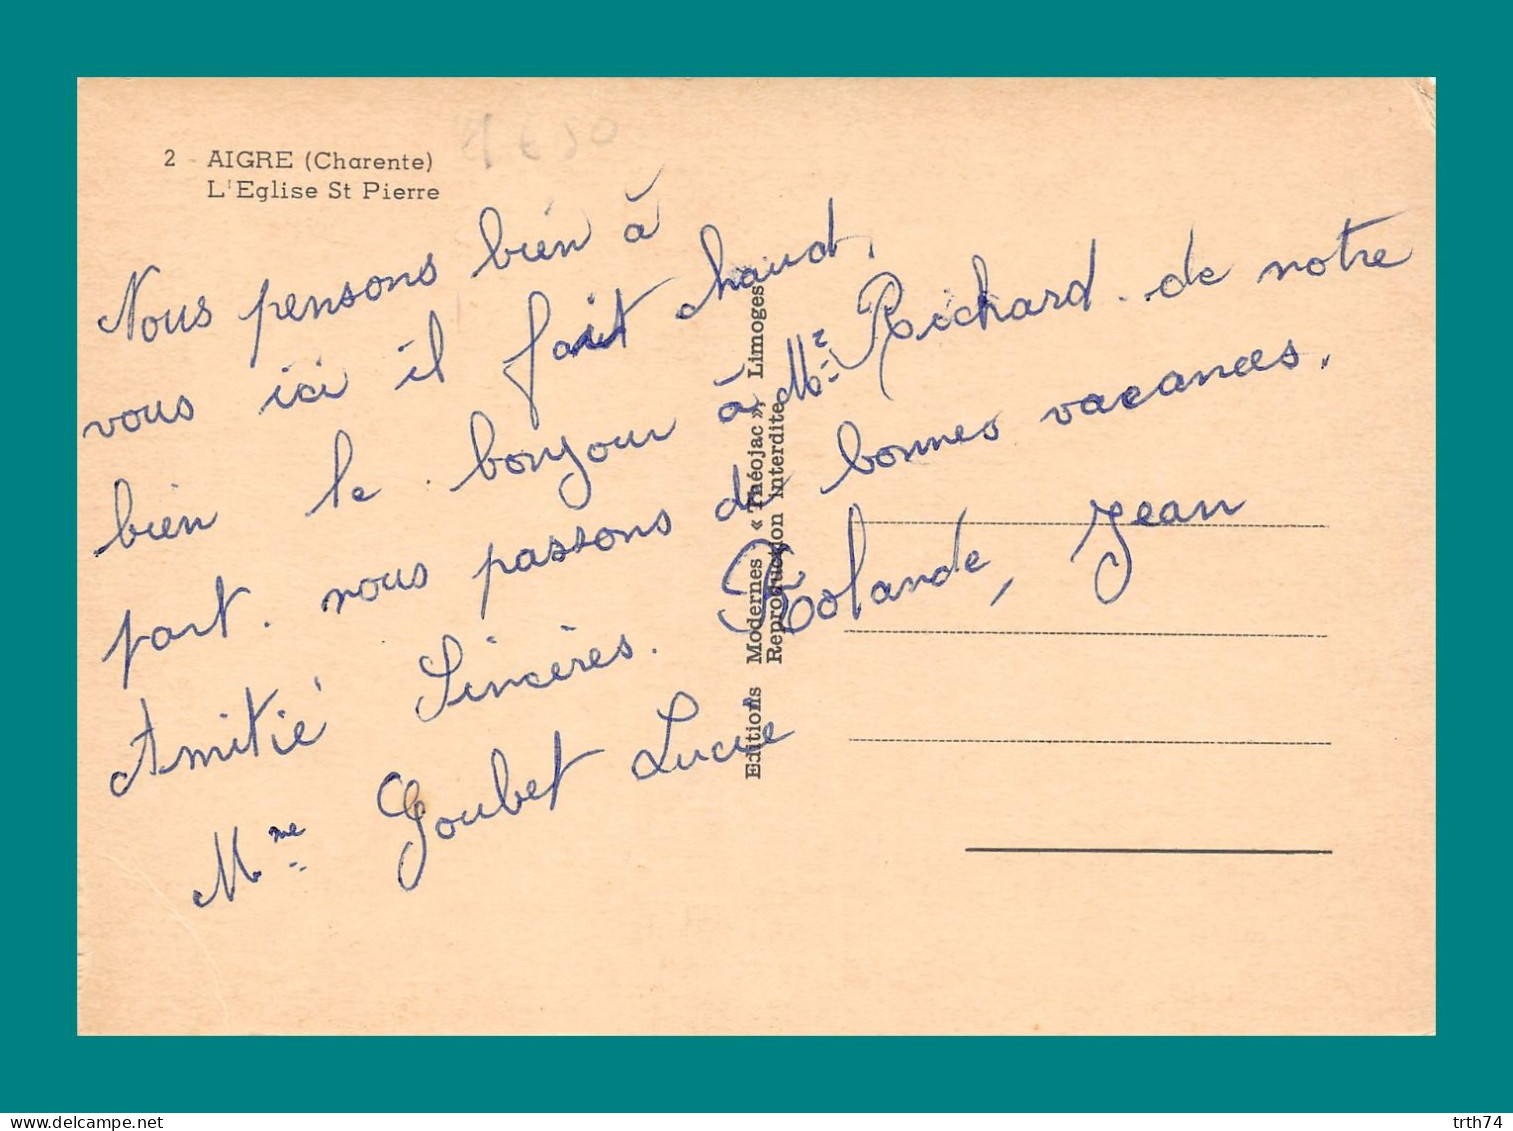 2 - AIGRE (Charente)
L'Eglise St Pierre
Nous pensons bien à
vous ici il fait chaud.
bien le bonjour à Mr Richard de notre
part. nous passons de bonnes vacances.
Amitié Sincères. Rolande, Jean
Mme Goubet Lucie
Editions Modernes « Théojac », Limoges
Reproduction Interdite
delcampe.net
trth74